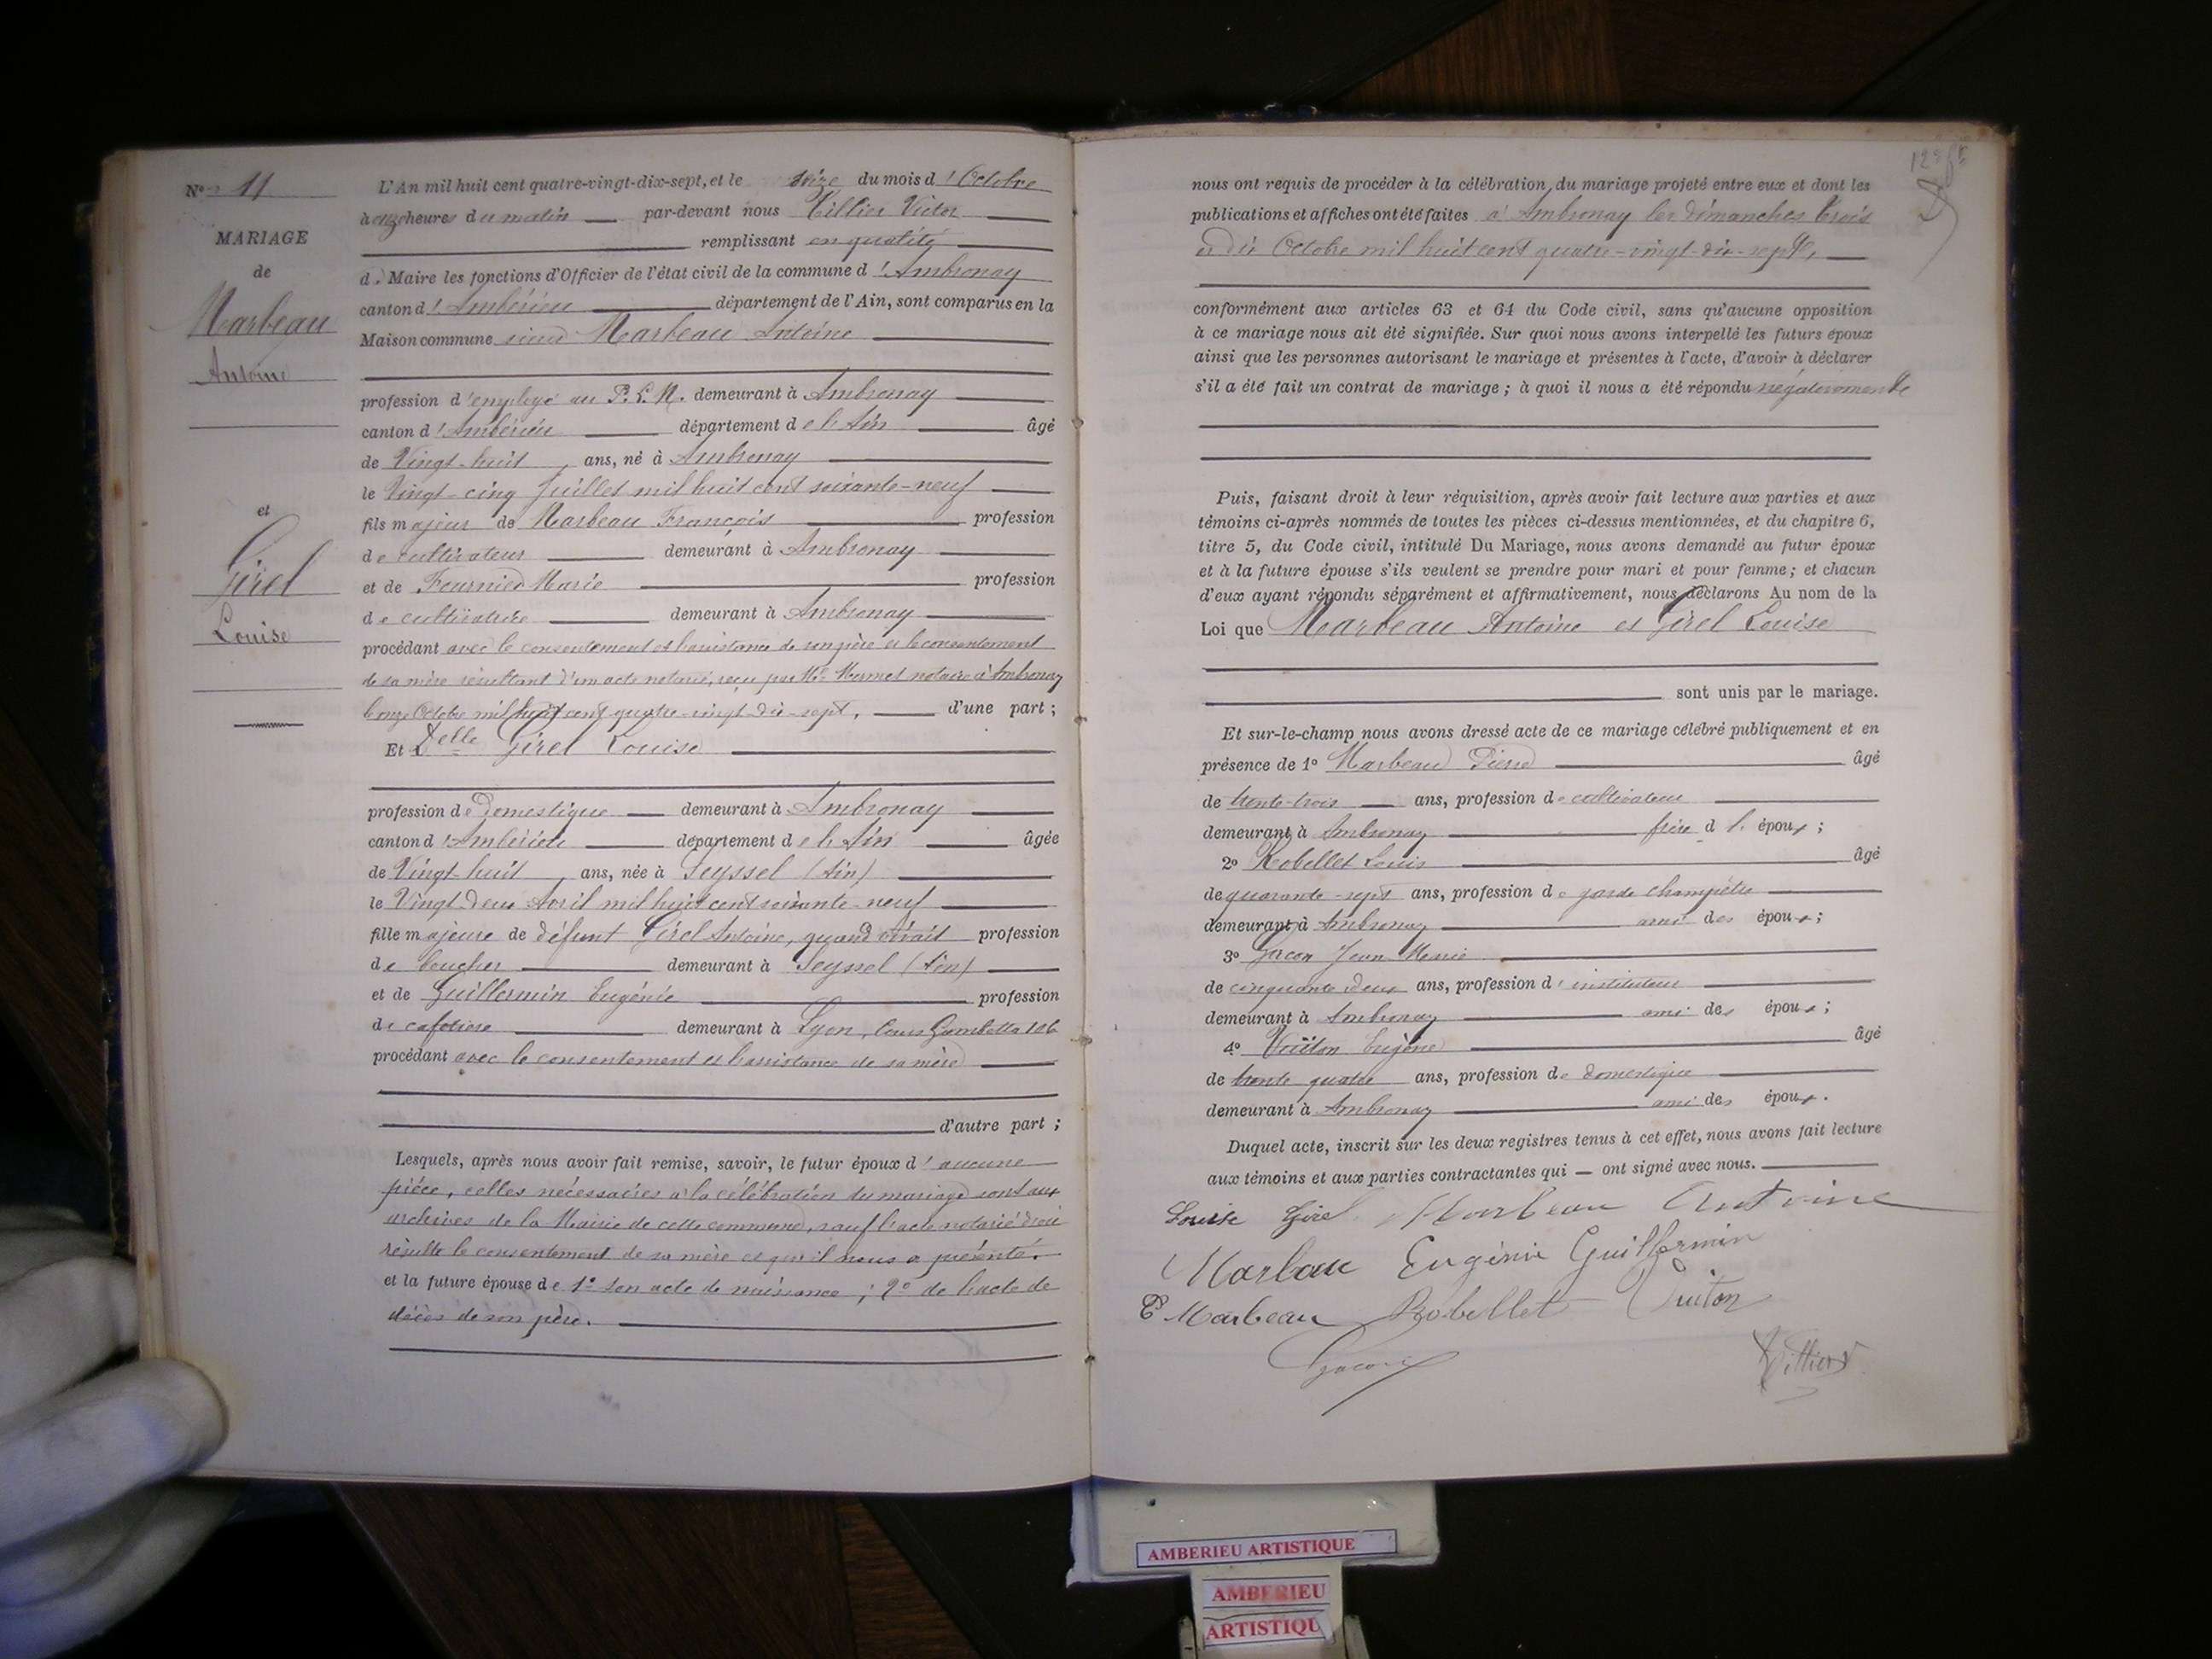 Nº 11
MARIAGE
de
Marbeau
Antoine
et
Girel
Louise
L'An mil huit cent quatre-vingt-dix-sept, et le seize du mois d'Octobre
à onze heures du matin par-devant nous Tillier Victor
remplissant en qualité
de Maire les fonctions d'Officier de l'état civil de la commune d'Ambronay
canton d'Ambérieu département de l'Ain, sont comparus en la
Maison commune sieur Marbeau Antoine
profession d'employé au P.L.M. demeurant à Ambronay
canton d'Ambérieu département de l'Ain âgé
de Vingt-huit ans, né à Ambronay
le Vingt-cinq Juillet mil huit cent soixante-neuf
fils majeur de Marbeau François profession
de cultivateur demeurant à Ambronay
et de Fournier Marie profession
de cultivatrice demeurant à Ambronay
procédant avec le consentement et l'assistance de son père et le consentement
de sa mère résultant d'un acte notarié, reçu par Me Mermet notaire à Ambronay
le onze Octobre mil huit cent quatre-vingt-dix-sept, d'une part ;
Et Delle Girel Louise
profession de Domestique demeurant à Ambronay
canton d'Ambérieu département de l'Ain âgée
de Vingt-huit ans, née à Seyssel (Ain)
le Vingt-deux Avril mil huit cent soixante-neuf
fille majeure de défunt Girel Antoine, quand vivait profession
de boucher demeurant à Seyssel (Ain)
et de Guillermin Eugénie profession
de cafetière demeurant à Lyon, Cours Gambetta 106
procédant avec le consentement et l'assistance de sa mère
d'autre part ;
Lesquels, après nous avoir fait remise, savoir, le futur époux d'aucune
pièce, celles nécessaires à la célébration du mariage sont aux
archives de la Mairie de cette commune, sauf l'acte notarié d'où
résulte le consentement de sa mère et qu'il nous a présenté.
et la future épouse de 1º son acte de naissance ; 2º de l'acte de
décès de son père.
nous ont requis de procéder à la célébration du mariage projeté entre eux et dont les
publications et affiches ont été faites à Ambronay les dimanches trois
et dix Octobre mil huit cent quatre-vingt-dix-sept,
conformément aux articles 63 et 64 du Code civil, sans qu'aucune opposition
à ce mariage nous ait été signifiée. Sur quoi nous avons interpellé les futurs époux
ainsi que les personnes autorisant le mariage et présentes à l'acte, d'avoir à déclarer
s'il a été fait un contrat de mariage ; à quoi il nous a été répondu négativement
Puis, faisant droit à leur réquisition, après avoir fait lecture aux parties et aux
témoins ci-après nommés de toutes les pièces ci-dessus mentionnées, et du chapitre 6,
titre 5, du Code civil, intitulé Du Mariage, nous avons demandé au futur époux
et à la future épouse s'ils veulent se prendre pour mari et pour femme ; et chacun
d'eux ayant répondu séparément et affirmativement, nous déclarons Au nom de la
Loi que Marbeau Antoine et Girel Louise
sont unis par le mariage.
Et sur-le-champ nous avons dressé acte de ce mariage célébré publiquement et en
présence de 1º Marbeau Pierre âgé
de trente-trois ans, profession de cultivateur
demeurant à Ambronay frère de l'époux ;
2º Robellet Louis âgé
de quarante-sept ans, profession de garde champêtre
demeurant à Ambronay ami des époux ;
3º Gacon Jean Marie
de cinquante deux ans, profession d'instituteur
demeurant à Ambronay ami des époux ;
4º Vuiton Eugène âgé
de trente quatre ans, profession de domestique
demeurant à Ambronay ami des époux.
Duquel acte, inscrit sur les deux registres tenus à cet effet, nous avons fait lecture
aux témoins et aux parties contractantes qui — ont signé avec nous.
Louise Girel Marbeau Antoine
Marbeau Eugénie Guillermin
P Marbeau Robellet Vuiton
Gacon
VTillier
AMBERIEU ARTISTIQUE
AMBERIEU
ARTISTIQU